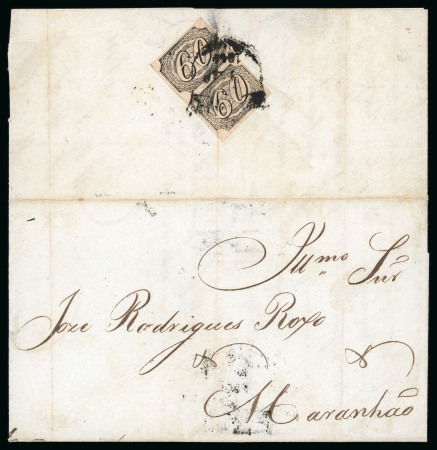 60
60
Illmo Snr
Jozé Rodrigues Roxo
Maranhão